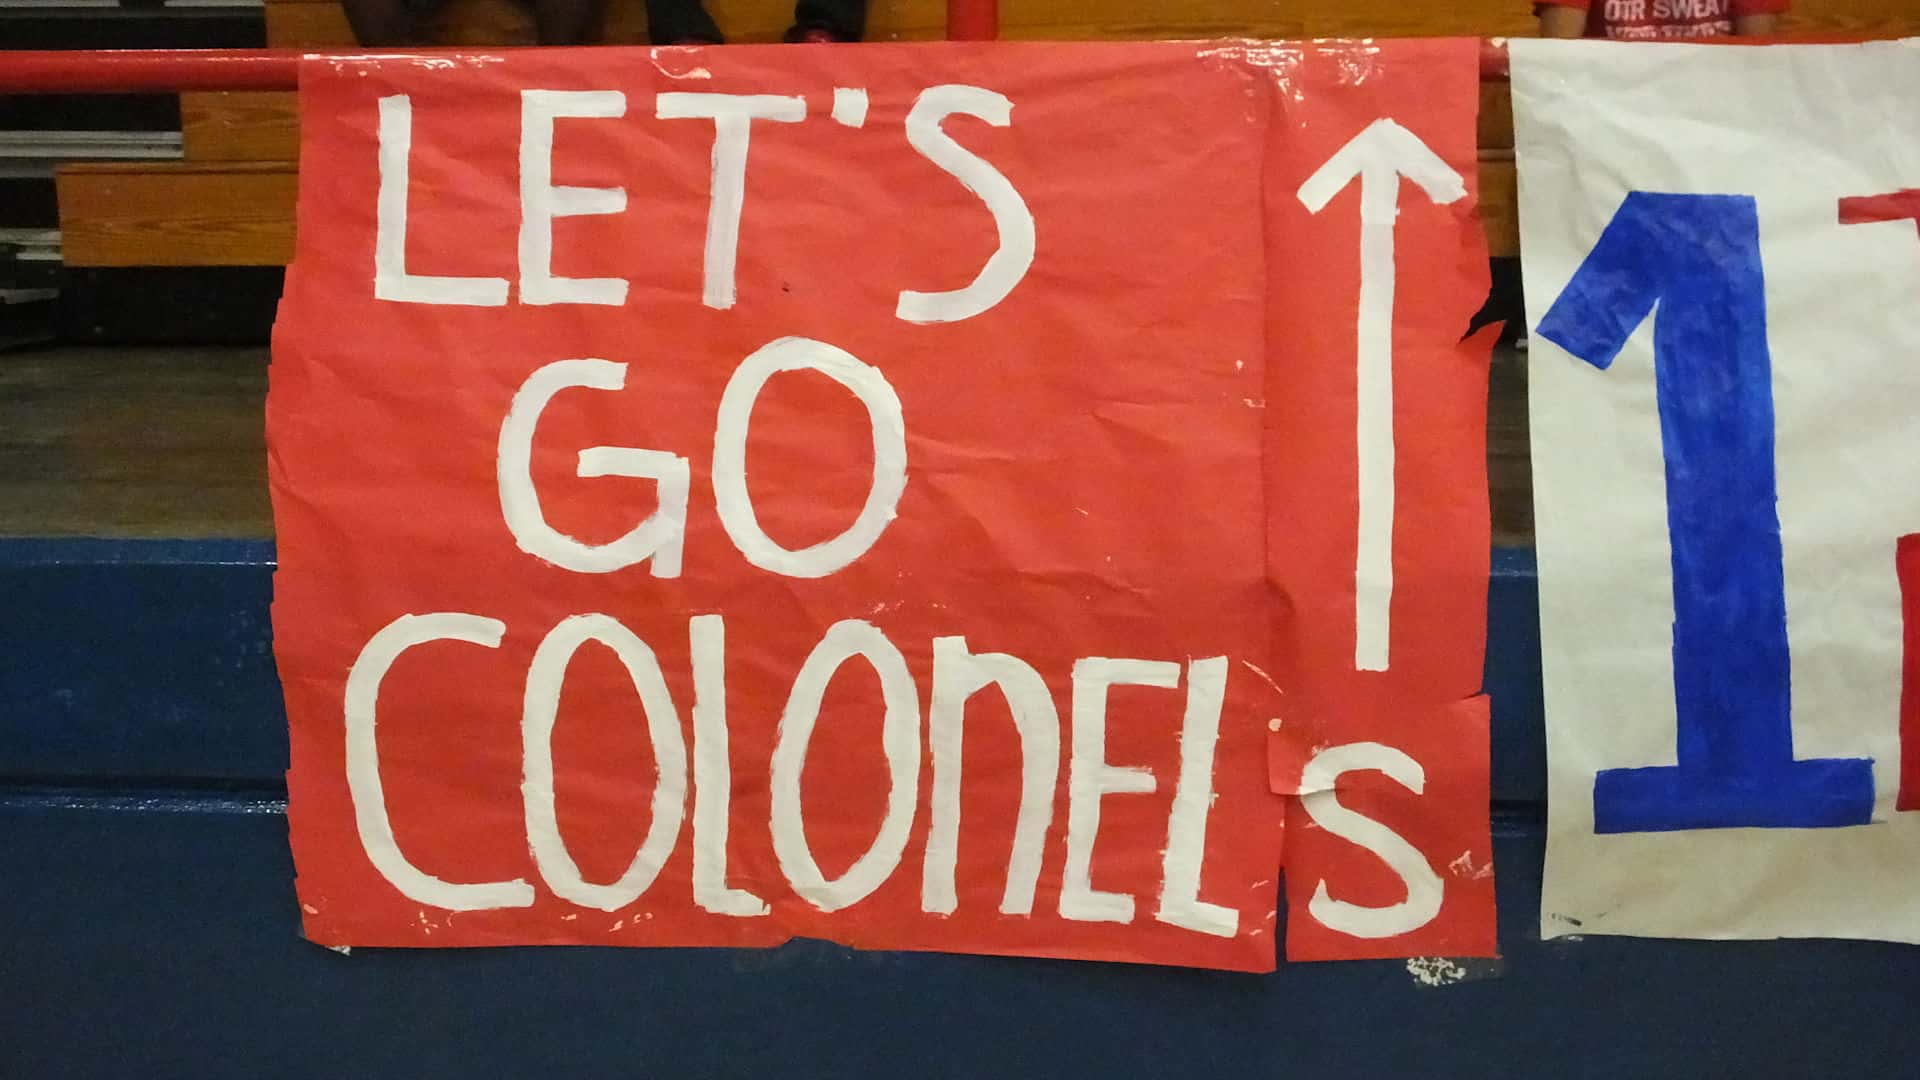 LET'S
GO
COLONELS
1
OUR SWEAT